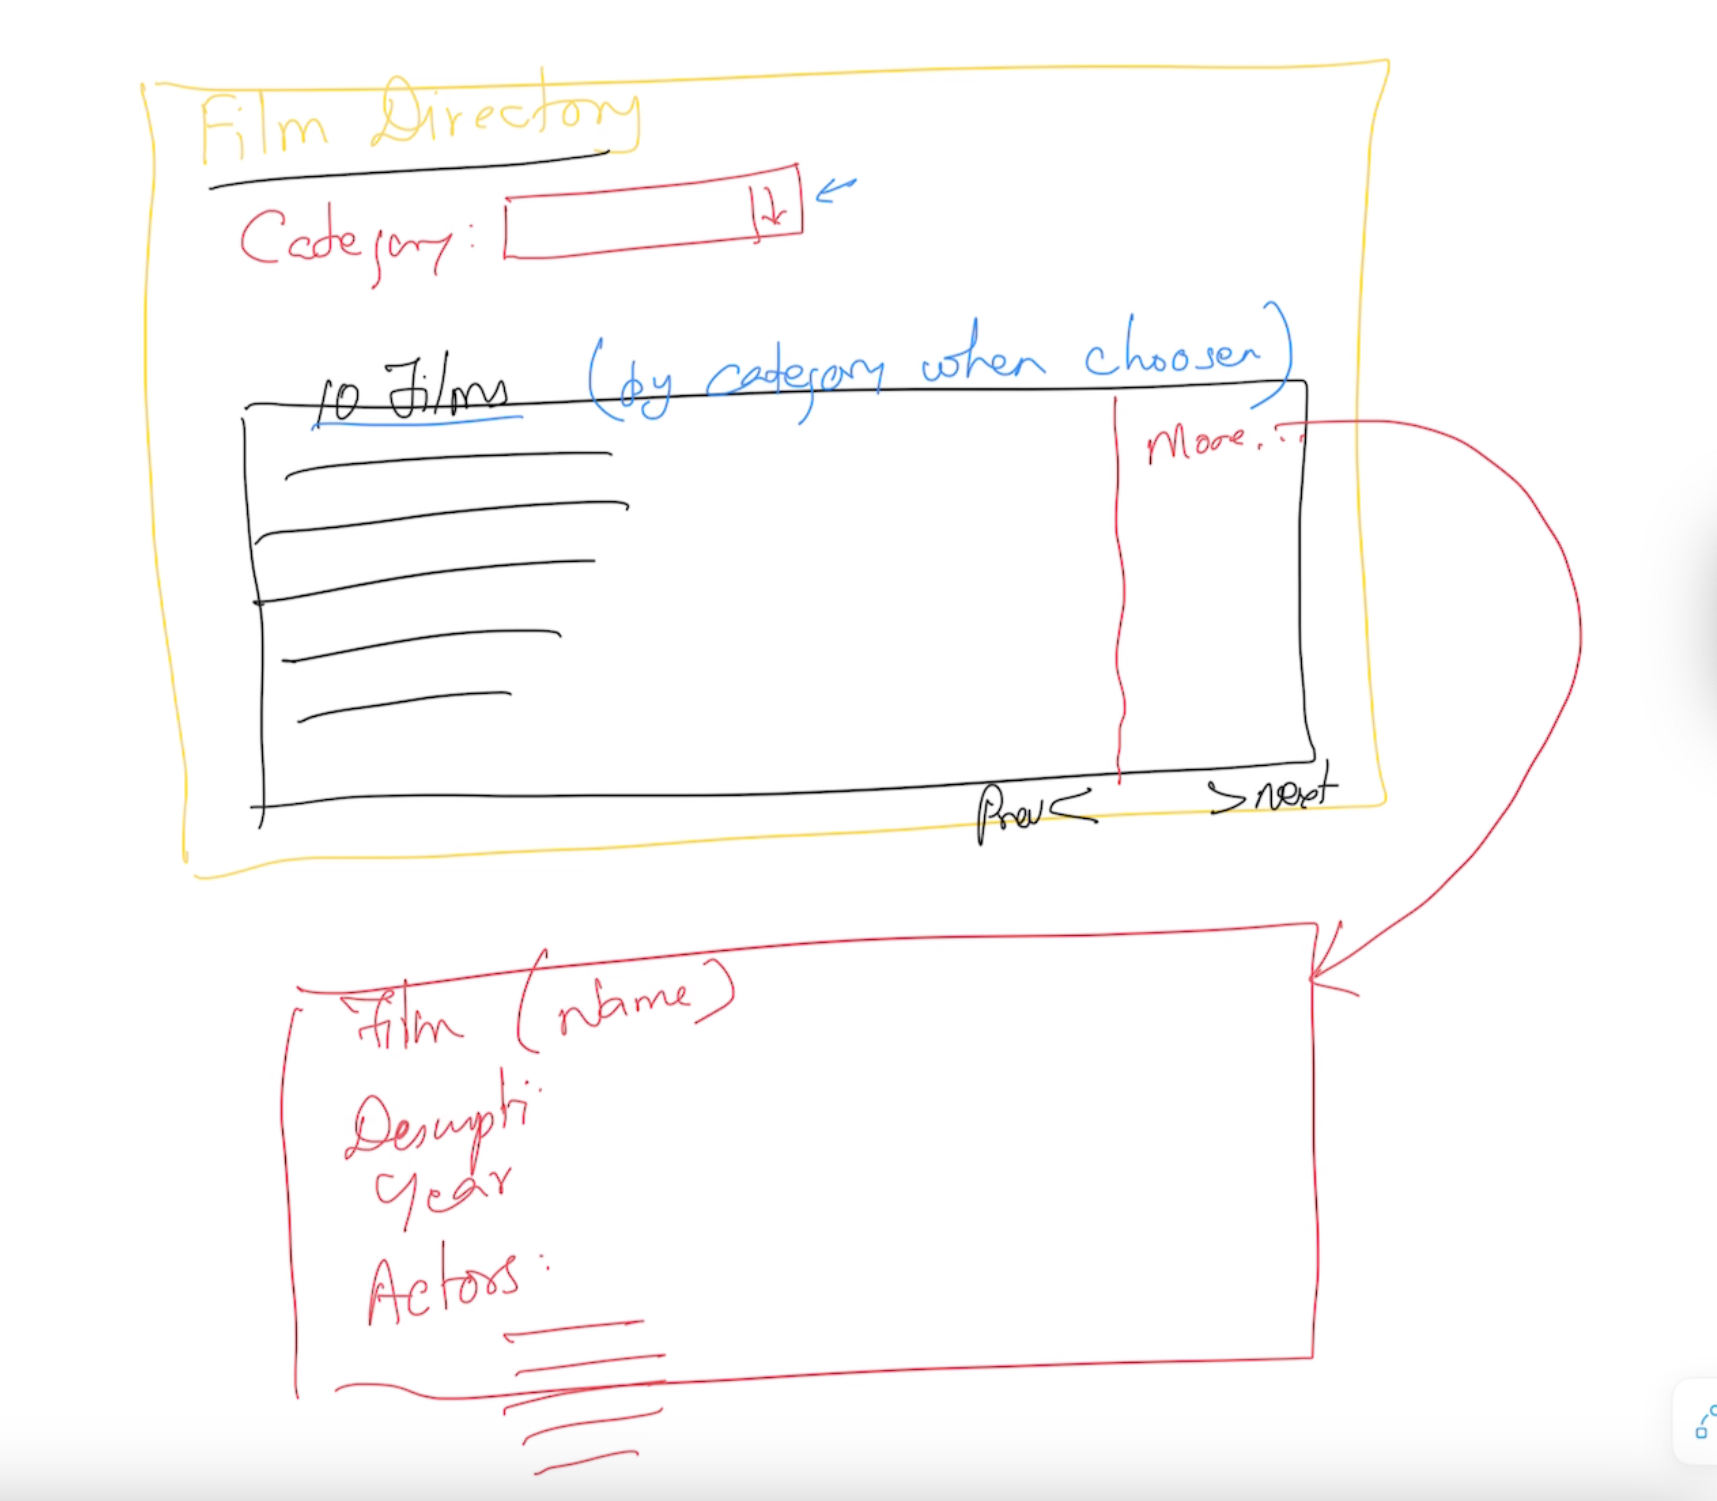 Film Directory
Category:
10 Films (by category when choosen)
More...
Prev< >next
Film (Name)
Descripti..
Year
Actors: